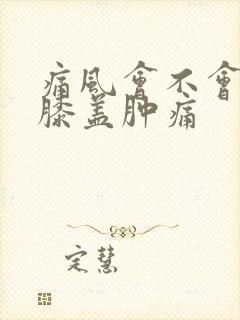 痛風會不會
膝盖肿痛
定慧